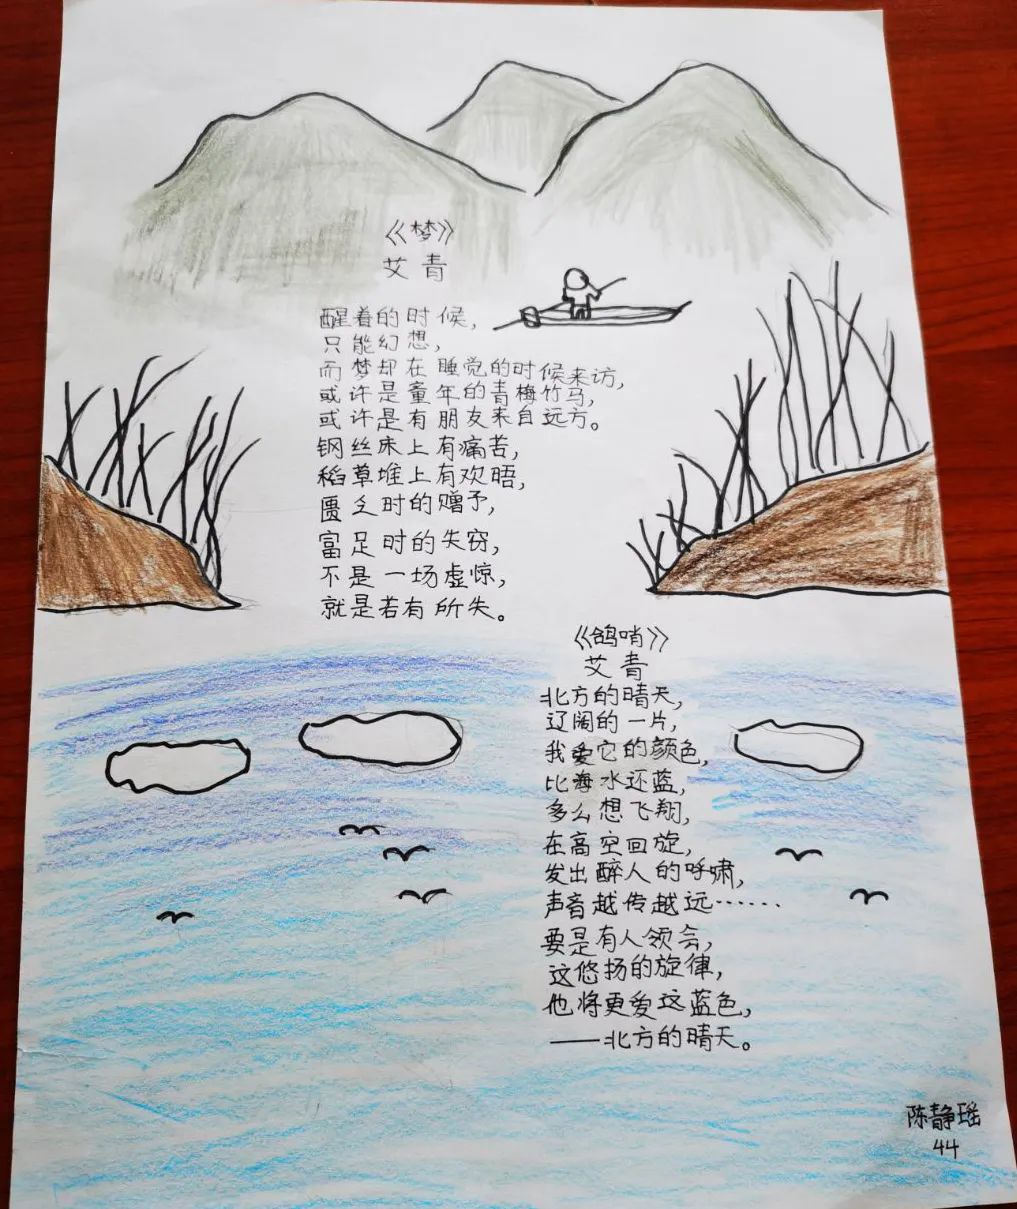 《梦》
艾青
醒着的时候，
只能幻想，
而梦却在睡觉的时候来访，
或许是童年的青梅竹马，
或许是有朋友来自远方。
钢丝床上有痛苦，
稻草堆上有欢晤，
匮乏时的赠予，
富足时的失窃，
不是一场虚惊，
就是若有所失。
《鸽哨》
艾青
北方的晴天，
辽阔的一片，
我爱它的颜色，
比海水还蓝，
多么想飞翔，
在高空回旋，
发出醉人的呼啸，
声音越传越远……
要是有人领会，
这悠扬的旋律，
他将更爱这蓝色，
——北方的晴天。
陈静瑶
44